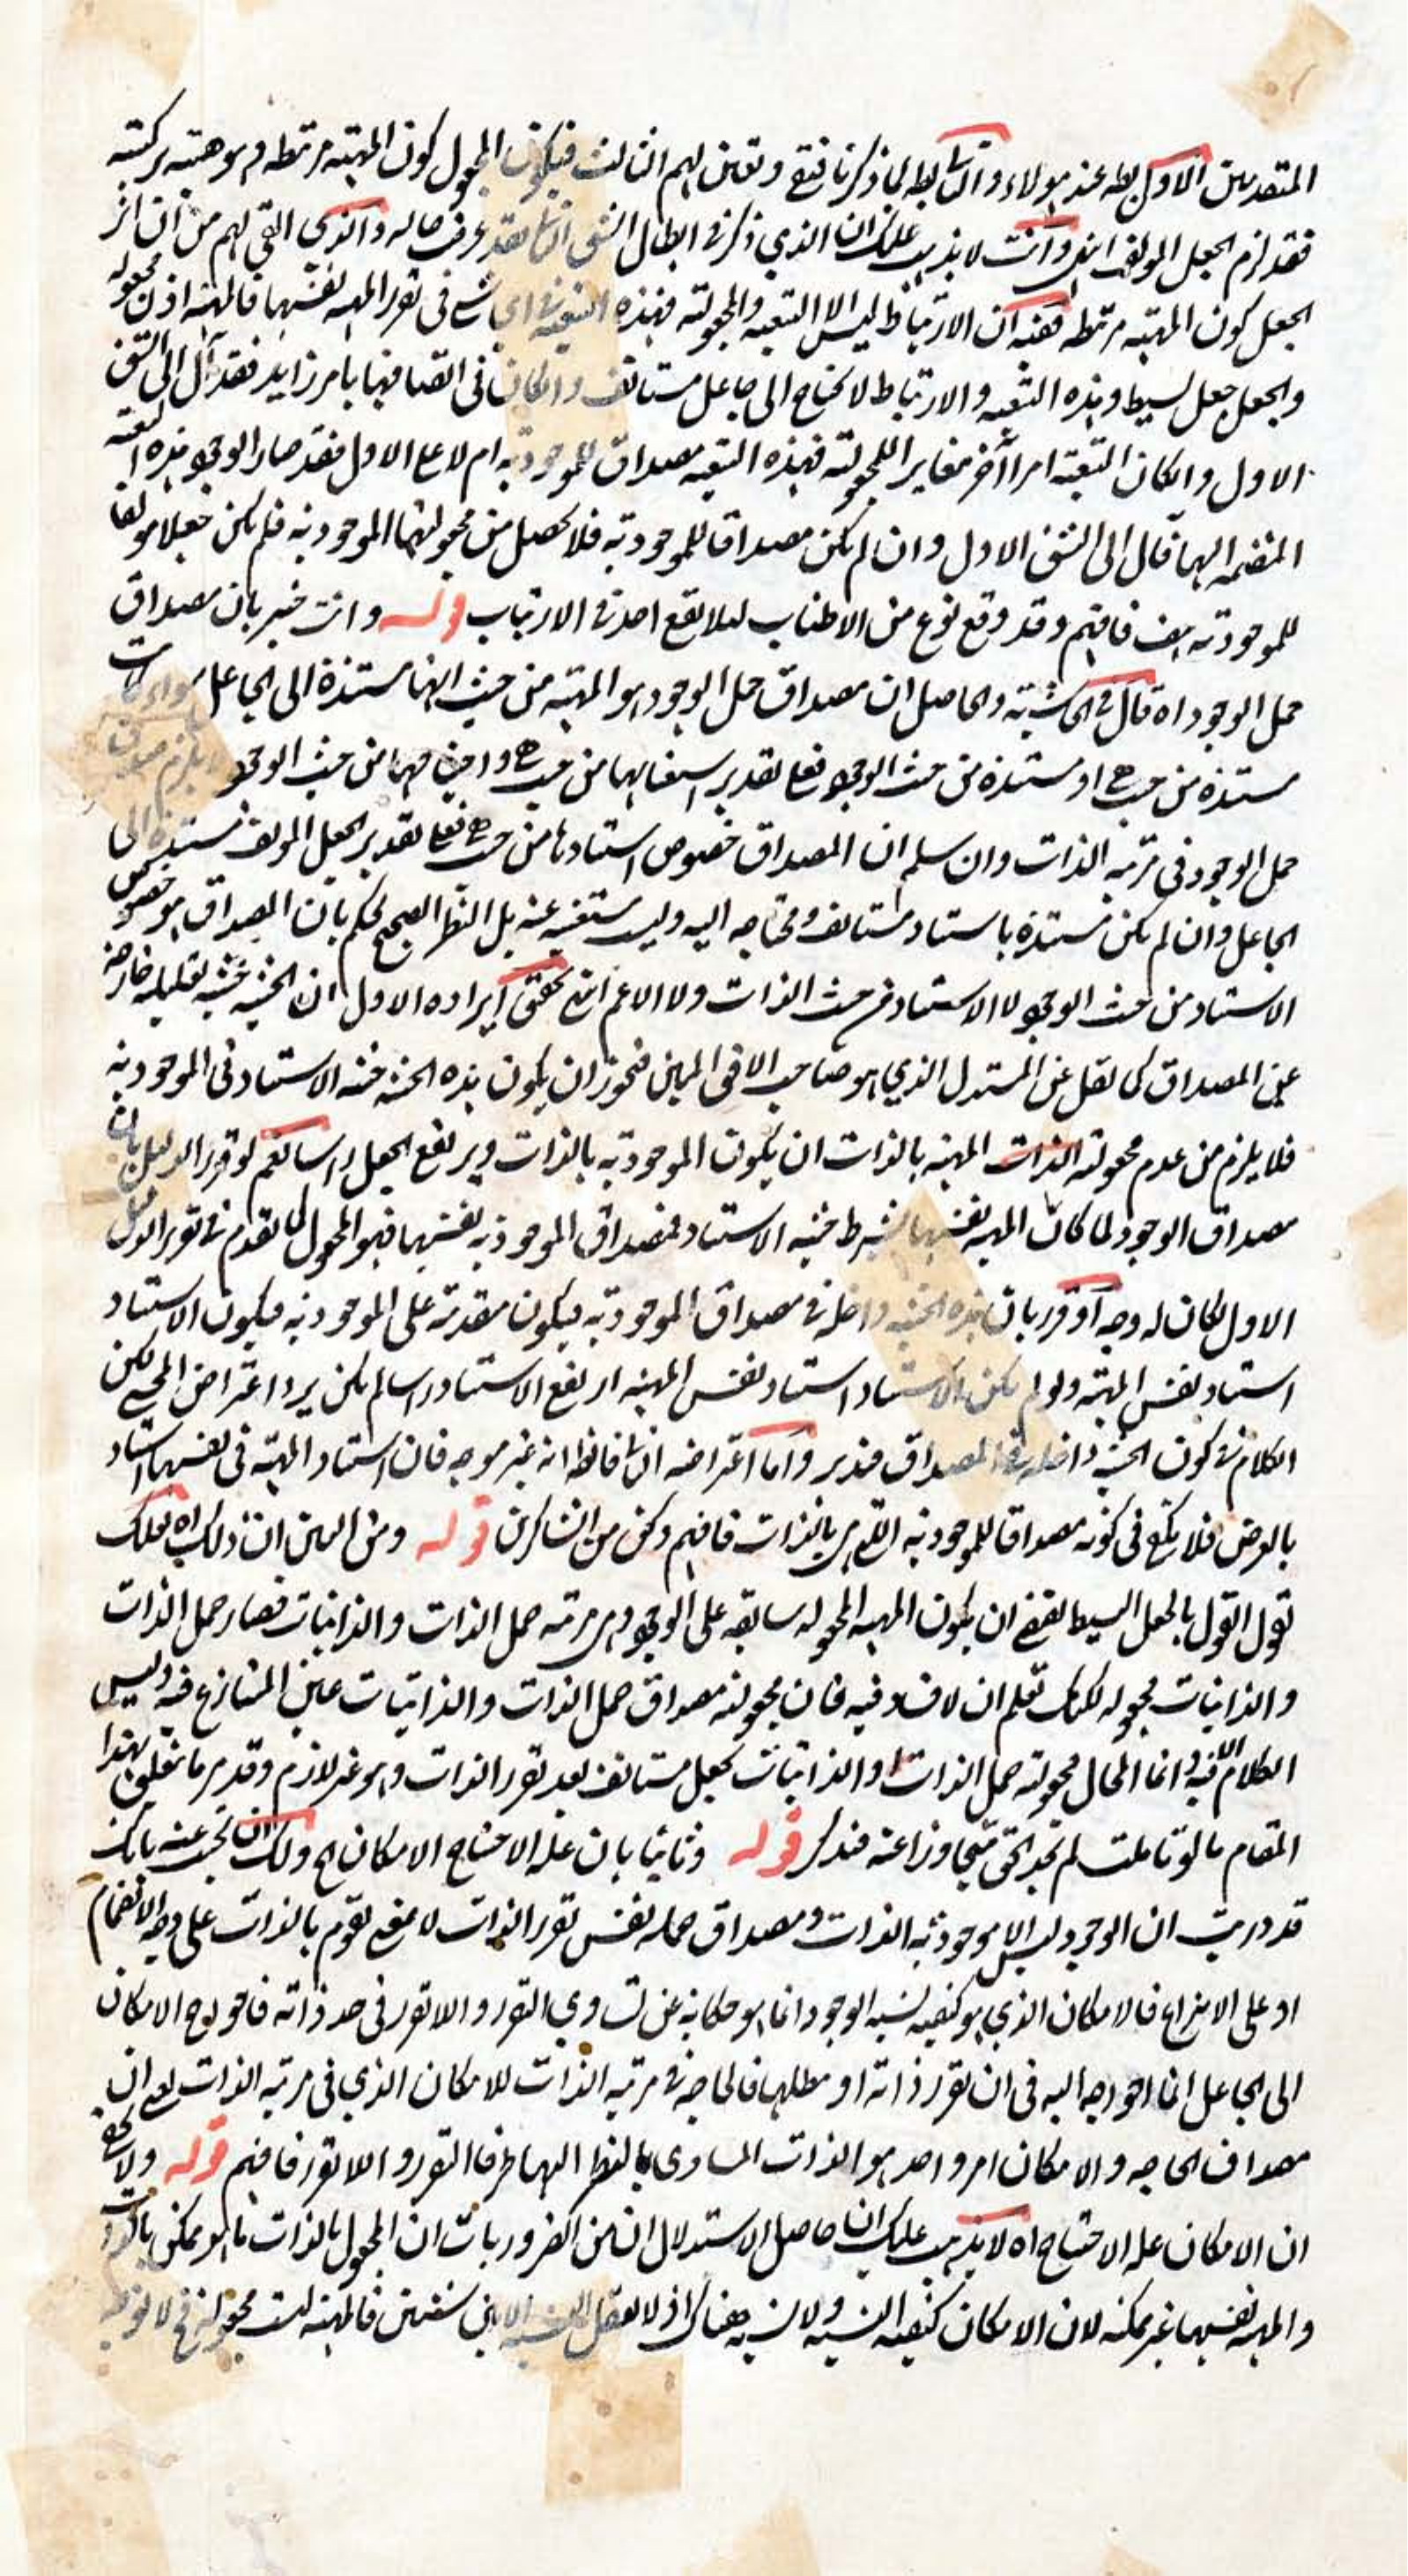 المتقدمين الاول بطه عند هولاء والثانى بطه لما ذكرنا فتعين لهم الثالث فيكون المجعول كون المهية مرتبطه
فقد لزم الجعل المولف ايض وانت لا يذهب عليك ان الذي ذكر فى ابطال الشق الثانى فقد عرف حاله والذي القى لهم من ان اثر
الجعل كون المهية مرتبطه ففيه ان الارتباط ليس الا التبعية والمجعولية فهذه التبعية فى تقرر المهية نفسها فالمهية اذن مجعوله
والجعل جعل بسيط وهذه التبعية والارتباط لا يحتاج الى جاعل مستانف وانكان فى اتصافها بامر زايد فقد آل الى الشق
الاول وانكان التبعية امرا آخر مغاير اللمجعولية فهذه التبعية مصداق للموجودية ام لا على الاول فقد صار الوجود هذه التبعية
المنضمة اليها فال الى الشق الاول وان لم يكن مصداقا للموجودية فلا يحصل من مجعوليتها الموجودية فلم يكن جعلا مولفا
للموجودية هف فافهم وقد وقع نوع من الاطناب لئلا يقع احد فى الارتياب قوله وانت خبير بان مصداق
حمل الوجود اه قال فى الحاشية والحاصل ان مصداق حمل الوجود هو المهية من حيث انها مستندة الى الجاعل سواء كانت
مستندة من حيث هى او مستندة من حيث الوجود فعلى تقدير استغنائها من حيث هى واحتياجها من حيث الوجود يلزم صدق
حمل الوجود فى مرتبة الذات وان سلم ان المصداق خصوص استنادها من حيث هى فعلى تقدير الجعل المولف مستندة الى
الجاعل وان لم يكن مستندة باستناد مستانف ومحتاجه اليه وليست مستغنية عنه بل النظر الصحيح يحكم بان المصداق هو خصوص
الاستناد من حيث الوجود لا الاستناد من حيث الذات ولا الاعم انتهى تحقيق ايراده الاول ان الحيثية حيثية تعليلية خارجة
عن المصداق كما نقل عن المستدل الذي هو صاحب الافق المبين فيجوز ان يكون هذه الحيثية حيثية الاستناد فى الموجودية
فلا يلزم من عدم مجعولية الذات المهية بالذات ان يكون الموجودية بالذات ويرتفع الجعل راسا نعم لو قرر الدليل بان
مصداق الوجود لما كان المهية نفسها بشرط حيثية الاستناد فمصداق الموجودية نفسها فهو المحمول كما تقدم فى تقرير الدليل
الاول لكان له وجه او قرر بان هذه الحيثية داخلة فى مصداق الموجودية فيكون مقدمة على الموجودية فيكون الاستناد
استناد نفس المهية ولو لم يكن الاستناد استناد نفس المهية ارتفع الاستناد راسا لم يكن يرد اعتراض المحشى لكن
الكلام فى كون الحيثية داخلة فى المصداق فتدبر واما اعتراضه الثانى فانظر انه غير موجه فان استناد المهية فى نفسها استناد
بالعرض فلا يكفى فى كونه مصداقا للموجودية التى هى بالذات فافهم وكن من الشاكرين قوله ومن البين ان ذلك اه لعلك
تقول القول بالجعل البسيط يقتضى ان يكون المهية المجعوله سابقه على الوجود وهى مرتبه حمل الذات والذاتيات فصار حمل الذات
والذاتيات مجعوله لكنك تعلم ان لا فساد فيه فان مجعولية مصداق حمل الذات والذاتيات عين المتنازع فيه وليس
الكلام فيه وانما المحال مجعولية حمل الذات والذاتيات بجعل مستانف بعد تقرر الذات وهو غير لازم وقد مر ما يتعلق بهذا
المقام ما لو تاملت لم تجد الحق متجاوزا عنه فتذكر قوله وثانيا بان علة الاحتياج الامكان اه ولك ان تجيب عنه بانك
قد دريت ان الوجود ليس الا موجودية الذات ومصداق حمله نفس تقرر الذات لا معنى يقوم بالذات على وجه الانضمام
او على الانتزاع فالامكان الذي هو كيفية نسبة الوجود انما هو حكاية عن تساوي التقرر واللاتقرر فى حد ذاته فاحوج الامكان
الى الجاعل انما احوجه اليه فى ان تقرر ذاته او مطلها فالحاجة فى مرتبة الذات للامكان الذي فى مرتبة الذات يعنى ان
مصداق الحاجة والامكان امر واحد هو الذات المساوى بالنظر اليها طرفا التقرر واللاتقرر فافهم قوله ولا يخفى
ان الامكان علة الاحتياج اه لا يذهب عليك ان حاصل الاستدلال ان من الضروريات ان المجعول بالذات ما هو ممكن بالذات
والمهية نفسها غير ممكنة لان الامكان كيفية النسبة ولا نسبة هناك اذ لا يعقل النسبة الا بين شيئين فالمهية ليست مجعولة